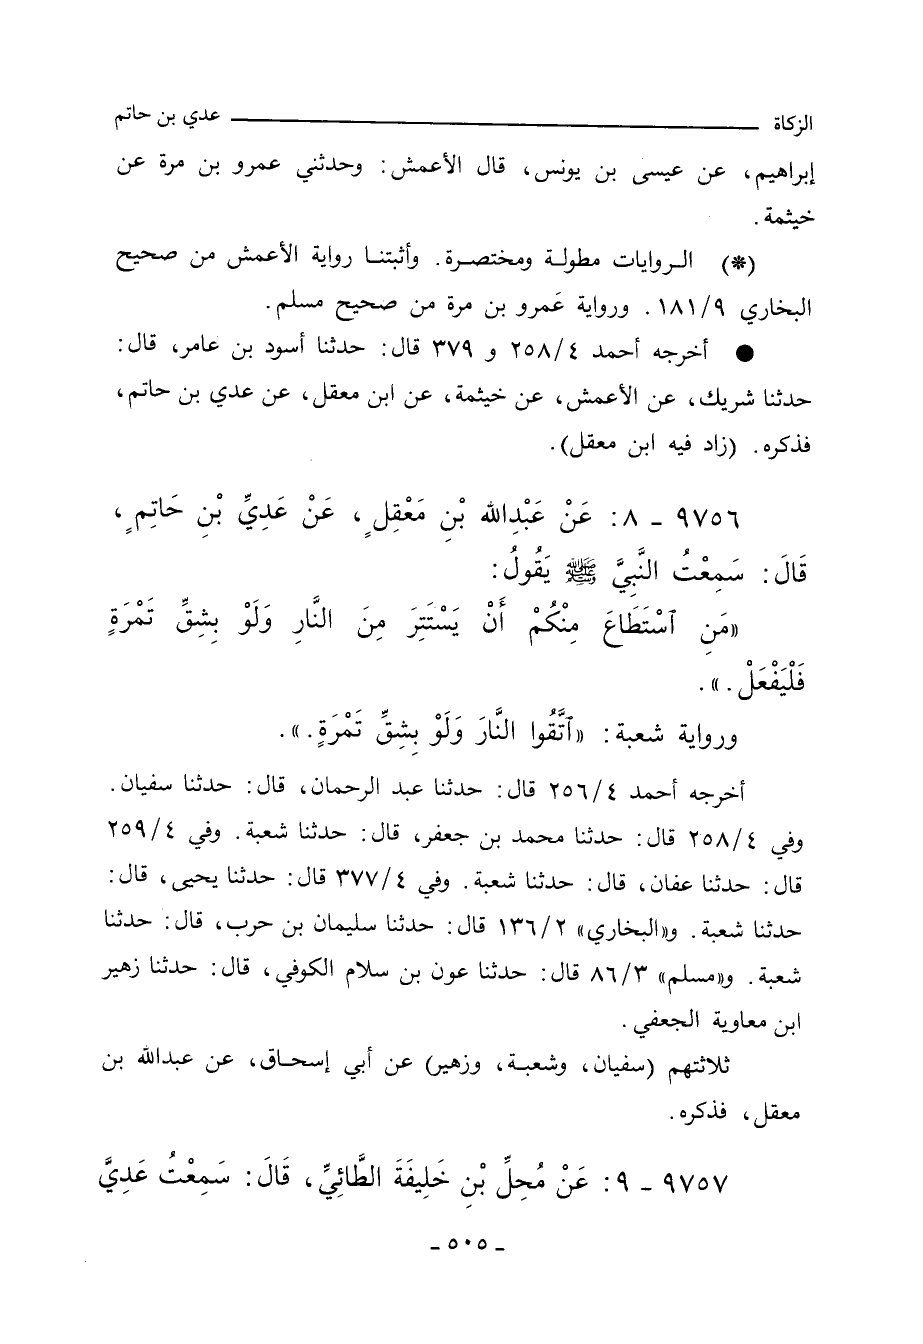 الزكاة ـــــــــــــ عدي بن حاتم
إبراهيم، عن عيسى بن يونس، قال الأعمش: وحدثني عمرو بن مرة عن
خيثمة.
(*) الروايات مطولة ومختصرة. وأثبتنا رواية الأعمش من صحيح
البخاري ٩/ ١٨١. ورواية عَمرو بن مرة من صحيح مسلم.
● أخرجه أحمد ٤/ ٢٥٨ و ٣٧٩ قال: حدثنا أسود بن عامر، قال:
حدثنا شريك، عن الأعمش، عن خيثمة، عن ابن معقل، عن عدي بن حاتم،
فذكره. (زاد فيه ابن معقل).
٩٧٥٦ ـ ٨: عَنْ عَبْدِالله بْنِ مَعْقِلٍ، عَنْ عَدِيِّ بْنِ حَاتِمٍ،
قَالَ: سَمِعْتُ النَّبِيَّ ﷺ يَقُولُ:
«مَنِ ٱسْتَطَاعَ مِنْكُمْ أَنْ يَسْتَتِرَ مِنَ النَّارِ وَلَوْ بِشِقِّ تَمْرَةٍ
فَلْيَفْعَلْ.».
ورواية شعبة: «ٱتَّقُوا النَّارَ وَلَوْ بِشِقِّ تَمْرَةٍ.».
أخرجه أحمد ٤/ ٢٥٦ قال: حدثنا عبد الرحمان، قال: حدثنا سفيان.
وفي ٤/ ٢٥٨ قال: حدثنا محمد بن جعفر، قال: حدثنا شعبة. وفي ٤/ ٢٥٩
قال: حدثنا عفان، قال: حدثنا شعبة. وفي ٤/ ٣٧٧ قال: حدثنا يحيى، قال:
حدثنا شعبة. و«البخاري» ٢/ ١٣٦ قال: حدثنا سليمان بن حرب، قال: حدثنا
شعبة. و«مسلم» ٣/ ٨٦ قال: حدثنا عون بن سلام الكوفي، قال: حدثنا زهير
ابن معاوية الجعفي.
ثلاثتهم (سفيان، وشعبة، وزهير) عن أبي إسحاق، عن عبدالله بن
معقل، فذكره.
٩٧٥٧ ـ ٩: عَنْ مُحِلِّ بْنِ خَلِيفَةَ الطَّائِيِّ، قَالَ: سَمِعْتُ عَدِيَّ
ـ ٥٠٥ ـ